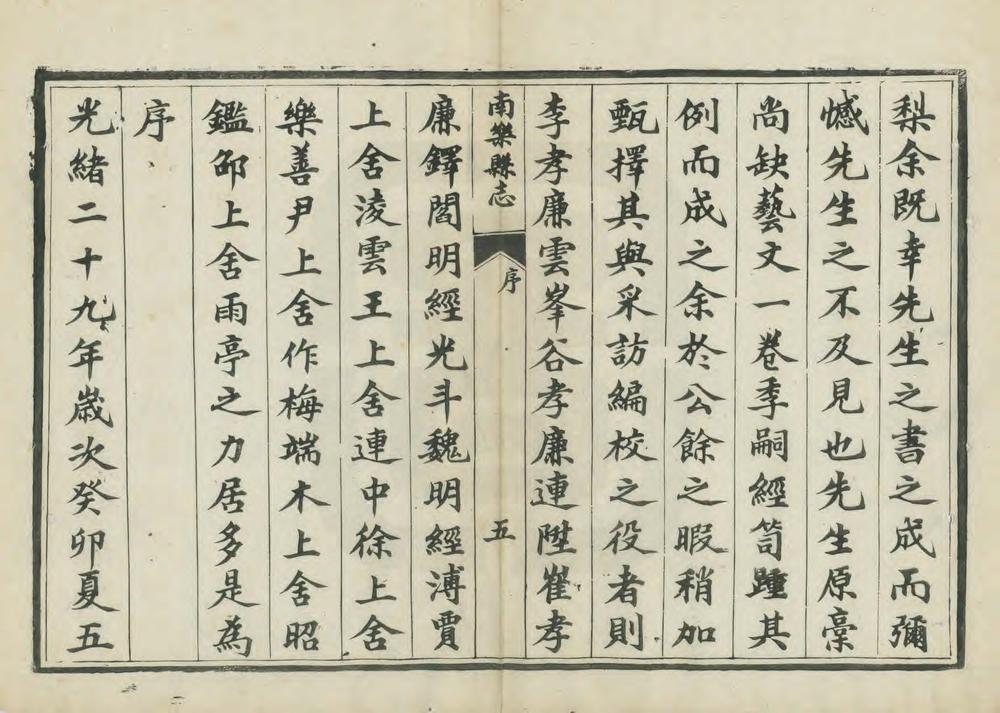 梨余既幸先生之書之成而彌
憾先生之不及見也先生原稾
尚缺藝文一卷季嗣經笥踵其
例而成之余於公餘之暇稍加
甄擇其與采訪編校之役者則
李孝廉雲峯谷孝廉連陞崔孝
南樂縣志
序
五
廉鐸閻明經光斗魏明經溥賈
上舍淩雲王上舍連中徐上舍
樂善尹上舍作梅端木上舍昭
鑑邵上舍雨亭之力居多是為
序
光緒二十九年歲次癸卯夏五